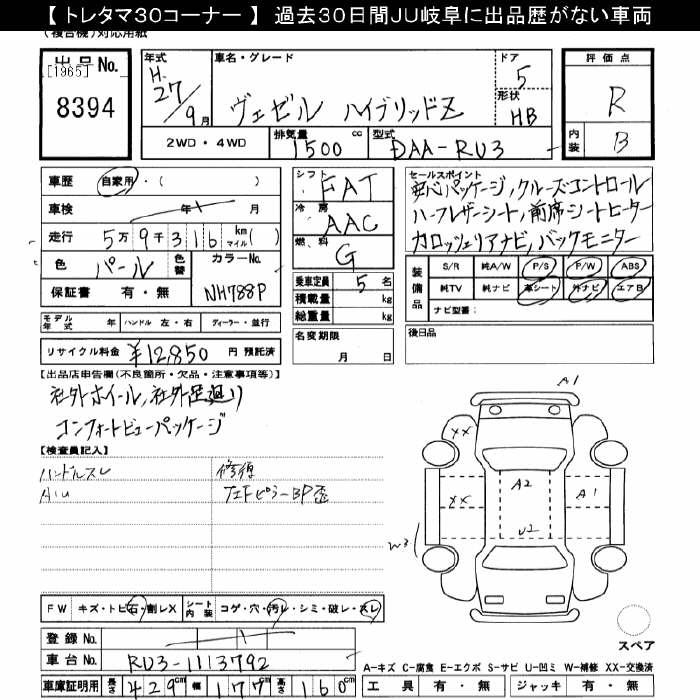 【 トレタマ30コーナー 】 過去30日間JU岐阜に出品歴がない車両
(複合機)対応用紙
出品No.
[1965]
8394
年式 H. 27/9月
車名・グレード ヴェゼル ハイブリッドZ
ドア 5
形状 HB
2WD・4WD
排気量 1500 cc
型式 DAA-RU3
評価点 R
内装 B
車歴 自家用・( )
車検 年 月
走行 5万9千316 km マイル( )
色 パール 色替
カラーNo. NH788P
保証書 有・無
シフト FAT
冷房 AAC
燃料 G
乗車定員 5名
積載量 kg
総重量 kg
セールスポイント
安心パッケージ, クルーズコントロール
ハーフレザーシート, 前席シートヒーター
カロッツェリアナビ, バックモニター
装備品 S/R 純A/W P/S P/W ABS
純TV 純ナビ 革シート 外ナビ エアB
ナビ型番:
モデル年式 年 ハンドル 左・右 ディーラー・並行
名変期限 月 日
後日品
リサイクル料金 ¥12,850 円 預託済
【出品店申告欄(不良箇所・欠品・注意事項等)】
社外ホイール, 社外足廻り
コンフォートビューパッケージ
【検査員記入】
ハンドルスレ 修復
A1U
A1
XX
XX
A2
A1
U2
W3
FW キズ・トビ石・割レX シート内装 コゲ・穴・汚レ・シミ・破レ・スレ
登録No.
車台No. RU3-1113792
車庫証明用 長さ 429cm 幅 177cm 高さ 160cm
スペア
A-キズ C-腐食 E-エクボ S-サビ U-凹ミ W-補修 XX-交換済
工具 有・無 ジャッキ 有・無